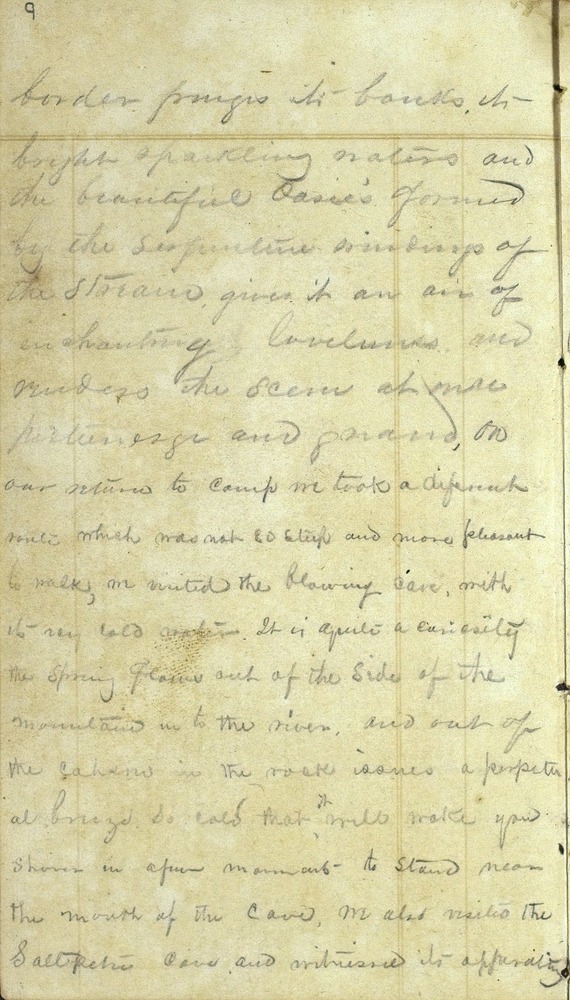 9
border fringes its banks, its
bright sparkling waters and
the beautiful Oasie's formed
by the Serpentine windings of
the Stream, gives it an air of
enchanting loveliness and
renders the Scene at once
and grand, on
our return to camp we took a diferent
route which was not so steep and more pleasant
to walk, we visited the blowing cave, with
its icy cold water. It is quite a curiosity
the Spring flows out of the Side of the
mountain in to the river, and out of
the in the rock issues a perpetu
al breeze so cold that it will make you
Shiver in a few moments to Stand near
the mouth of the Cave, We also visited the
Saltpetre Cave and witnessed its